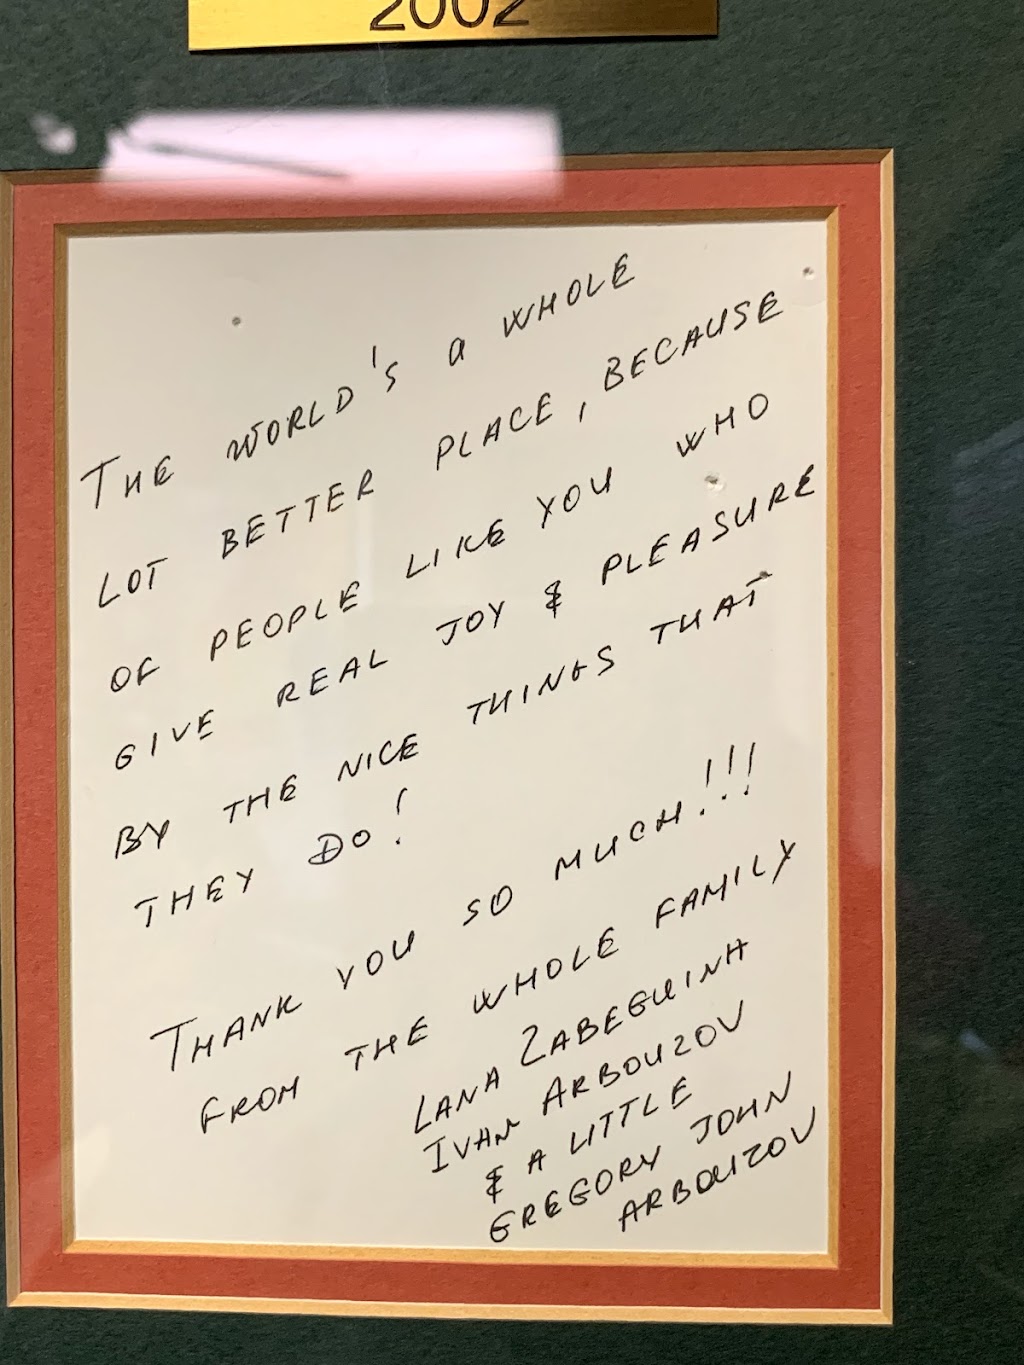 2002
THE WORLD'S a WHOLE
LOT BETTER PLACE, BECAUSE
OF PEOPLE LIKE YOU WHO
GIVE REAL JOY & PLEASURE
BY THE NICE THINGS THAT
THEY DO!
THANK YOU SO MUCH!!!
FROM THE WHOLE FAMILY
LANA ZABEGUINA
IVAN ARBOUZOV
& A LITTLE
GREGORY JOHN
ARBOUZOV